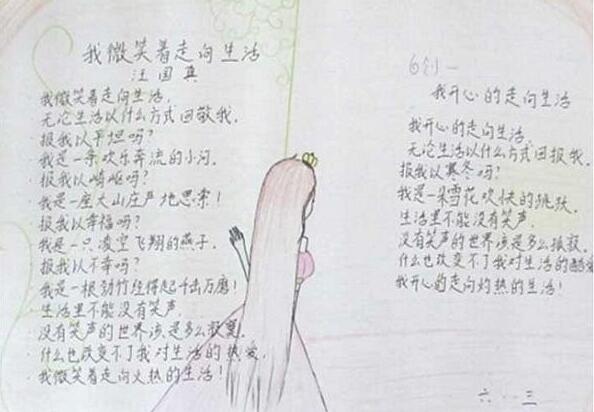 我微笑着走向生活
汪国真
我微笑着走向生活,
无论生活以什么方式回敬我。
报我以平坦吗?
我是一条欢乐奔流的小河。
报我以崎岖吗?
我是一座大山庄严地思索!
报我以幸福吗?
我是一只凌空飞翔的燕子。
报我以不幸吗?
我是一根劲竹经得起千击万磨!
生活里不能没有笑声,
没有笑声的世界该是多么寂寞。
什么也改变不了我对生活的热爱,
我微笑着走向火热的生活!
我开心的走向生活
我开心的走向生活,
无论生活以什么方式回报我。
报我以寒冬吗?
我是一朵雪花欢快的跳跃。
生活里不能没有笑声,
没有笑声的世界该是多么寂寞。
什么也改变不了我对生活的酷爱
我开心的走向灼热的生活!
六·三